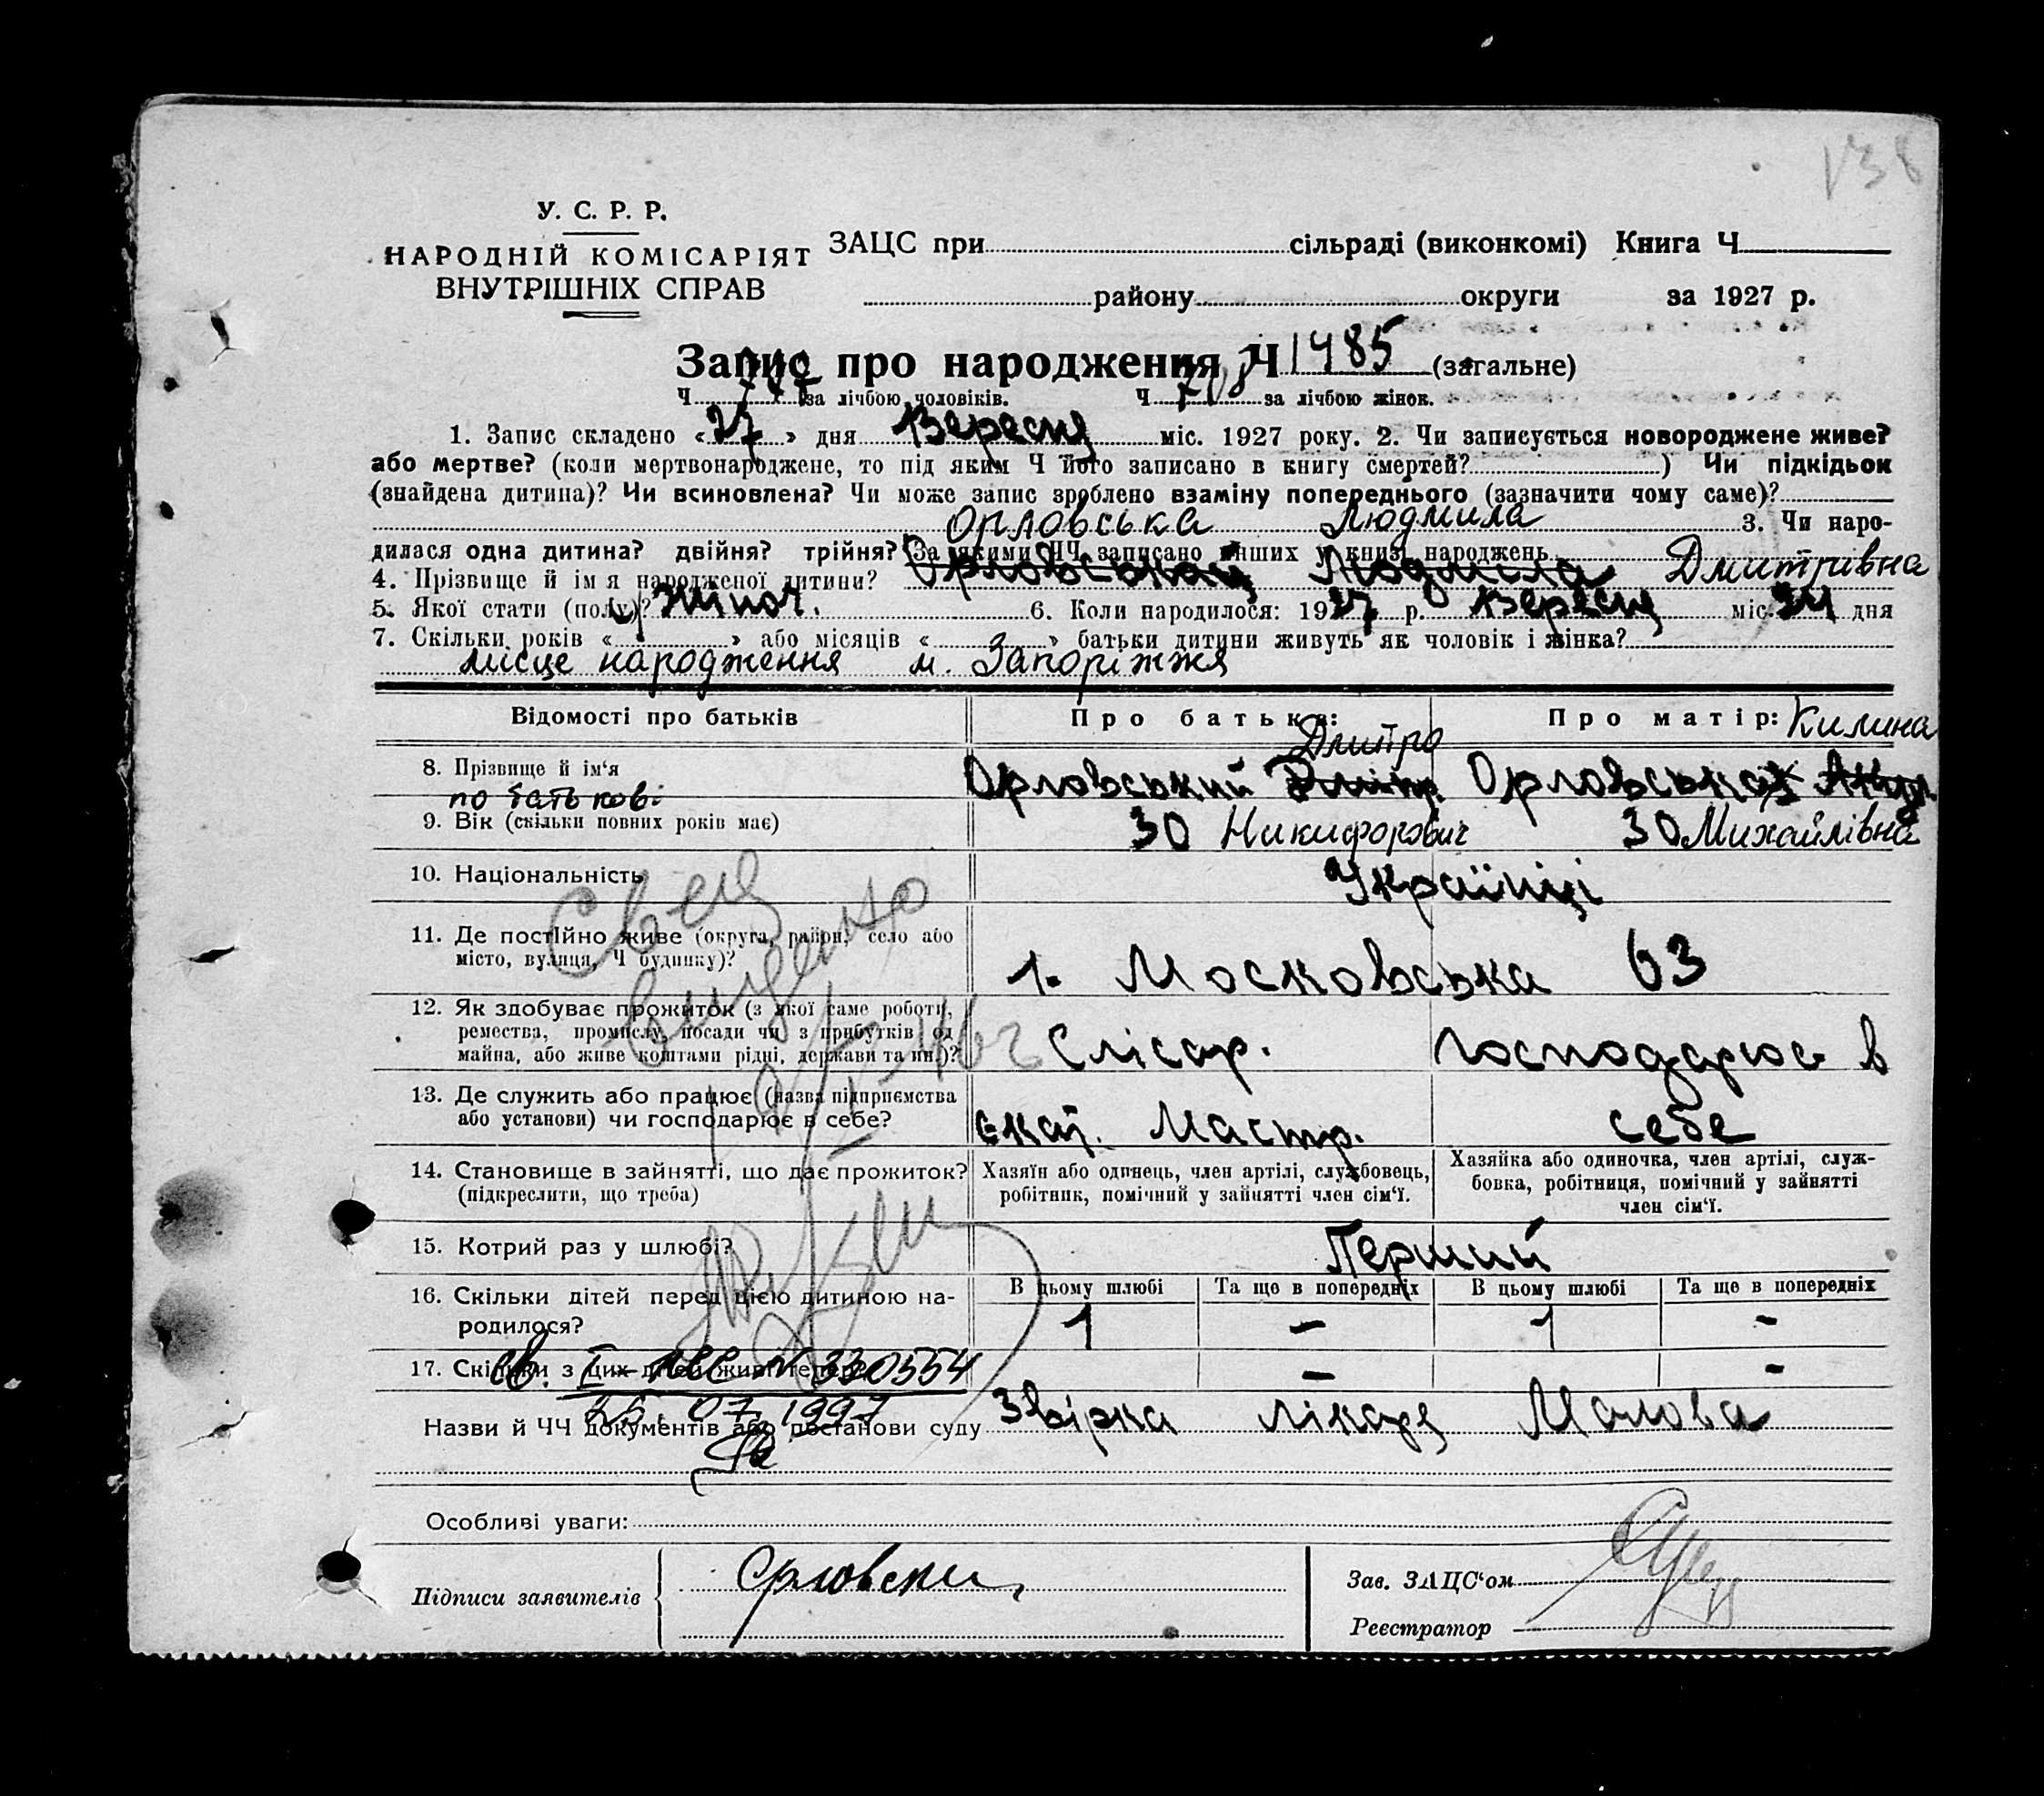 138
У. С. Р. Р.
НАРОДНІЙ КОМІСАРІЯТ
ВНУТРІШНІХ СПРАВ
ЗАЦС при сільраді (виконкомі) Книга Ч
району округи за 1927 р.
Запис про народження Ч 1485 (загальне)
Ч за лічбою чоловіків. Ч 708 за лічбою жінок.
1. Запис складено « 27 » дня Вересня міс. 1927 року. 2. Чи записується новороджене живе?
або мертве? (коли мертвонароджене, то під яким Ч його записано в книгу смертей? ) Чи підкідьок
(знайдена дитина)? Чи всиновлена? Чи може запис зроблено взаміну попереднього (зазначити чому саме)?
Орловська Людмила 3. Чи наро-
дилася одна дитина? двійня? трійня? За якими ЧЧ записано інших у книзі народжень
4. Прізвище й ім'я народженої дитини? Людмила Дмитрівна
5. Якої стати (полу)? Жіноч. 6. Коли народилося: 1927 р. Вересня міс. 24 дня
7. Скільки років « » або місяців « » батьки дитини живуть як чоловік і жінка?
місце народження м. Запоріжжя
Відомості про батьків Про батька: Про матір: Килина
Дмитро
8. Прізвище й ім'я Орловський Орловська
по батькові
9. Вік (скільки повних років має) 30 Никифорович 30 Михайлівна
10. Національність Українці
11. Де постійно живе (округа, район, село або
місто, вулиця, Ч будинку)? 1. Московська 63
12. Як здобуває прожиток (з якої саме роботи,
ремества, промислу, посади чи з прибутків од
майна, або живе коштами рідні, держави та ин.)? Слісар. Господарює в
13. Де служить або працює (назва підприємства
або установи) чи господарює в себе? Єкат. Мастр. себе
14. Становище в зайнятті, що дає прожиток?
(підкреслити, що треба)
Хазяїн або одинець, член артілі, службовець,
робітник, помічний у зайнятті член сім'ї.
Хазяйка або одиночка, член артілі, служ-
бовка, робітниця, помічний у зайнятті
член сім'ї.
15. Котрий раз у шлюбі? Перший
16. Скільки дітей перед цією дитиною на-
родилося?
В цьому шлюбі Та ще в попередніх В цьому шлюбі Та ще в попередніх
1 – 1 –
17. Скільки з цих дітей живі тепер? – –
св. N 330554
25. 07. 1997
Назви й ЧЧ документів або постанови суду Звірка лікаря Малова
Особливі уваги:
Підписи заявителів
Зав. ЗАЦС'ом
Реєстратор